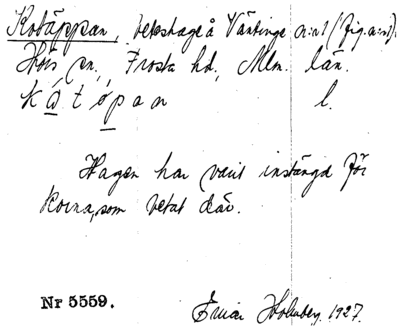 Kotäppan, beteshage å Väntinge n:o 1 (fig. a:n1).
Hörs sn., Frosta hd., Mlm. län.
k ω t ó p a n l.
Hagen har varit instängd för
korna, som betat där.
Nr 5559.
Einar Holmberg. 1927.